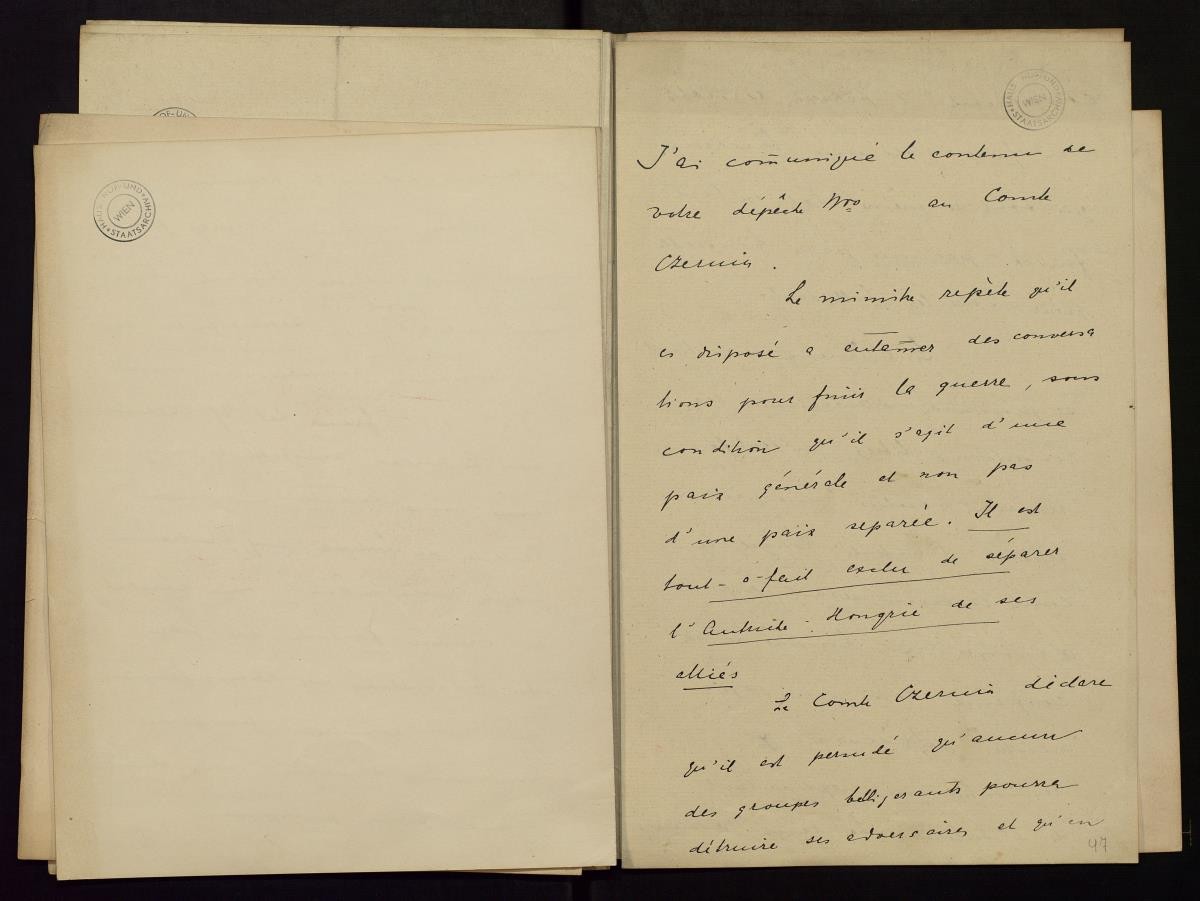 HAUS- HOF- UND STAATSARCHIV WIEN
HAUS- HOF- UND STAATSARCHIV WIEN
J'ai com̄uniqué le contenu de
votre dépêche Nro au Comte
Czernin.
Le ministre repète qu'il
es disposé a entam̄er des conversa
tions pour finir la guerre, sous
condition qu'il s'agit d'une
paix générale et non pas
d'une paix separée. Il est
tout-a-fait exclu de séparer
l'Autriche-Hongrie de ses
alliés
Le Comte Czernin déclare
qu'il est persudé qu'aucun
des groupes belligerants pourra
détruire ses adversaires et qu'en
97